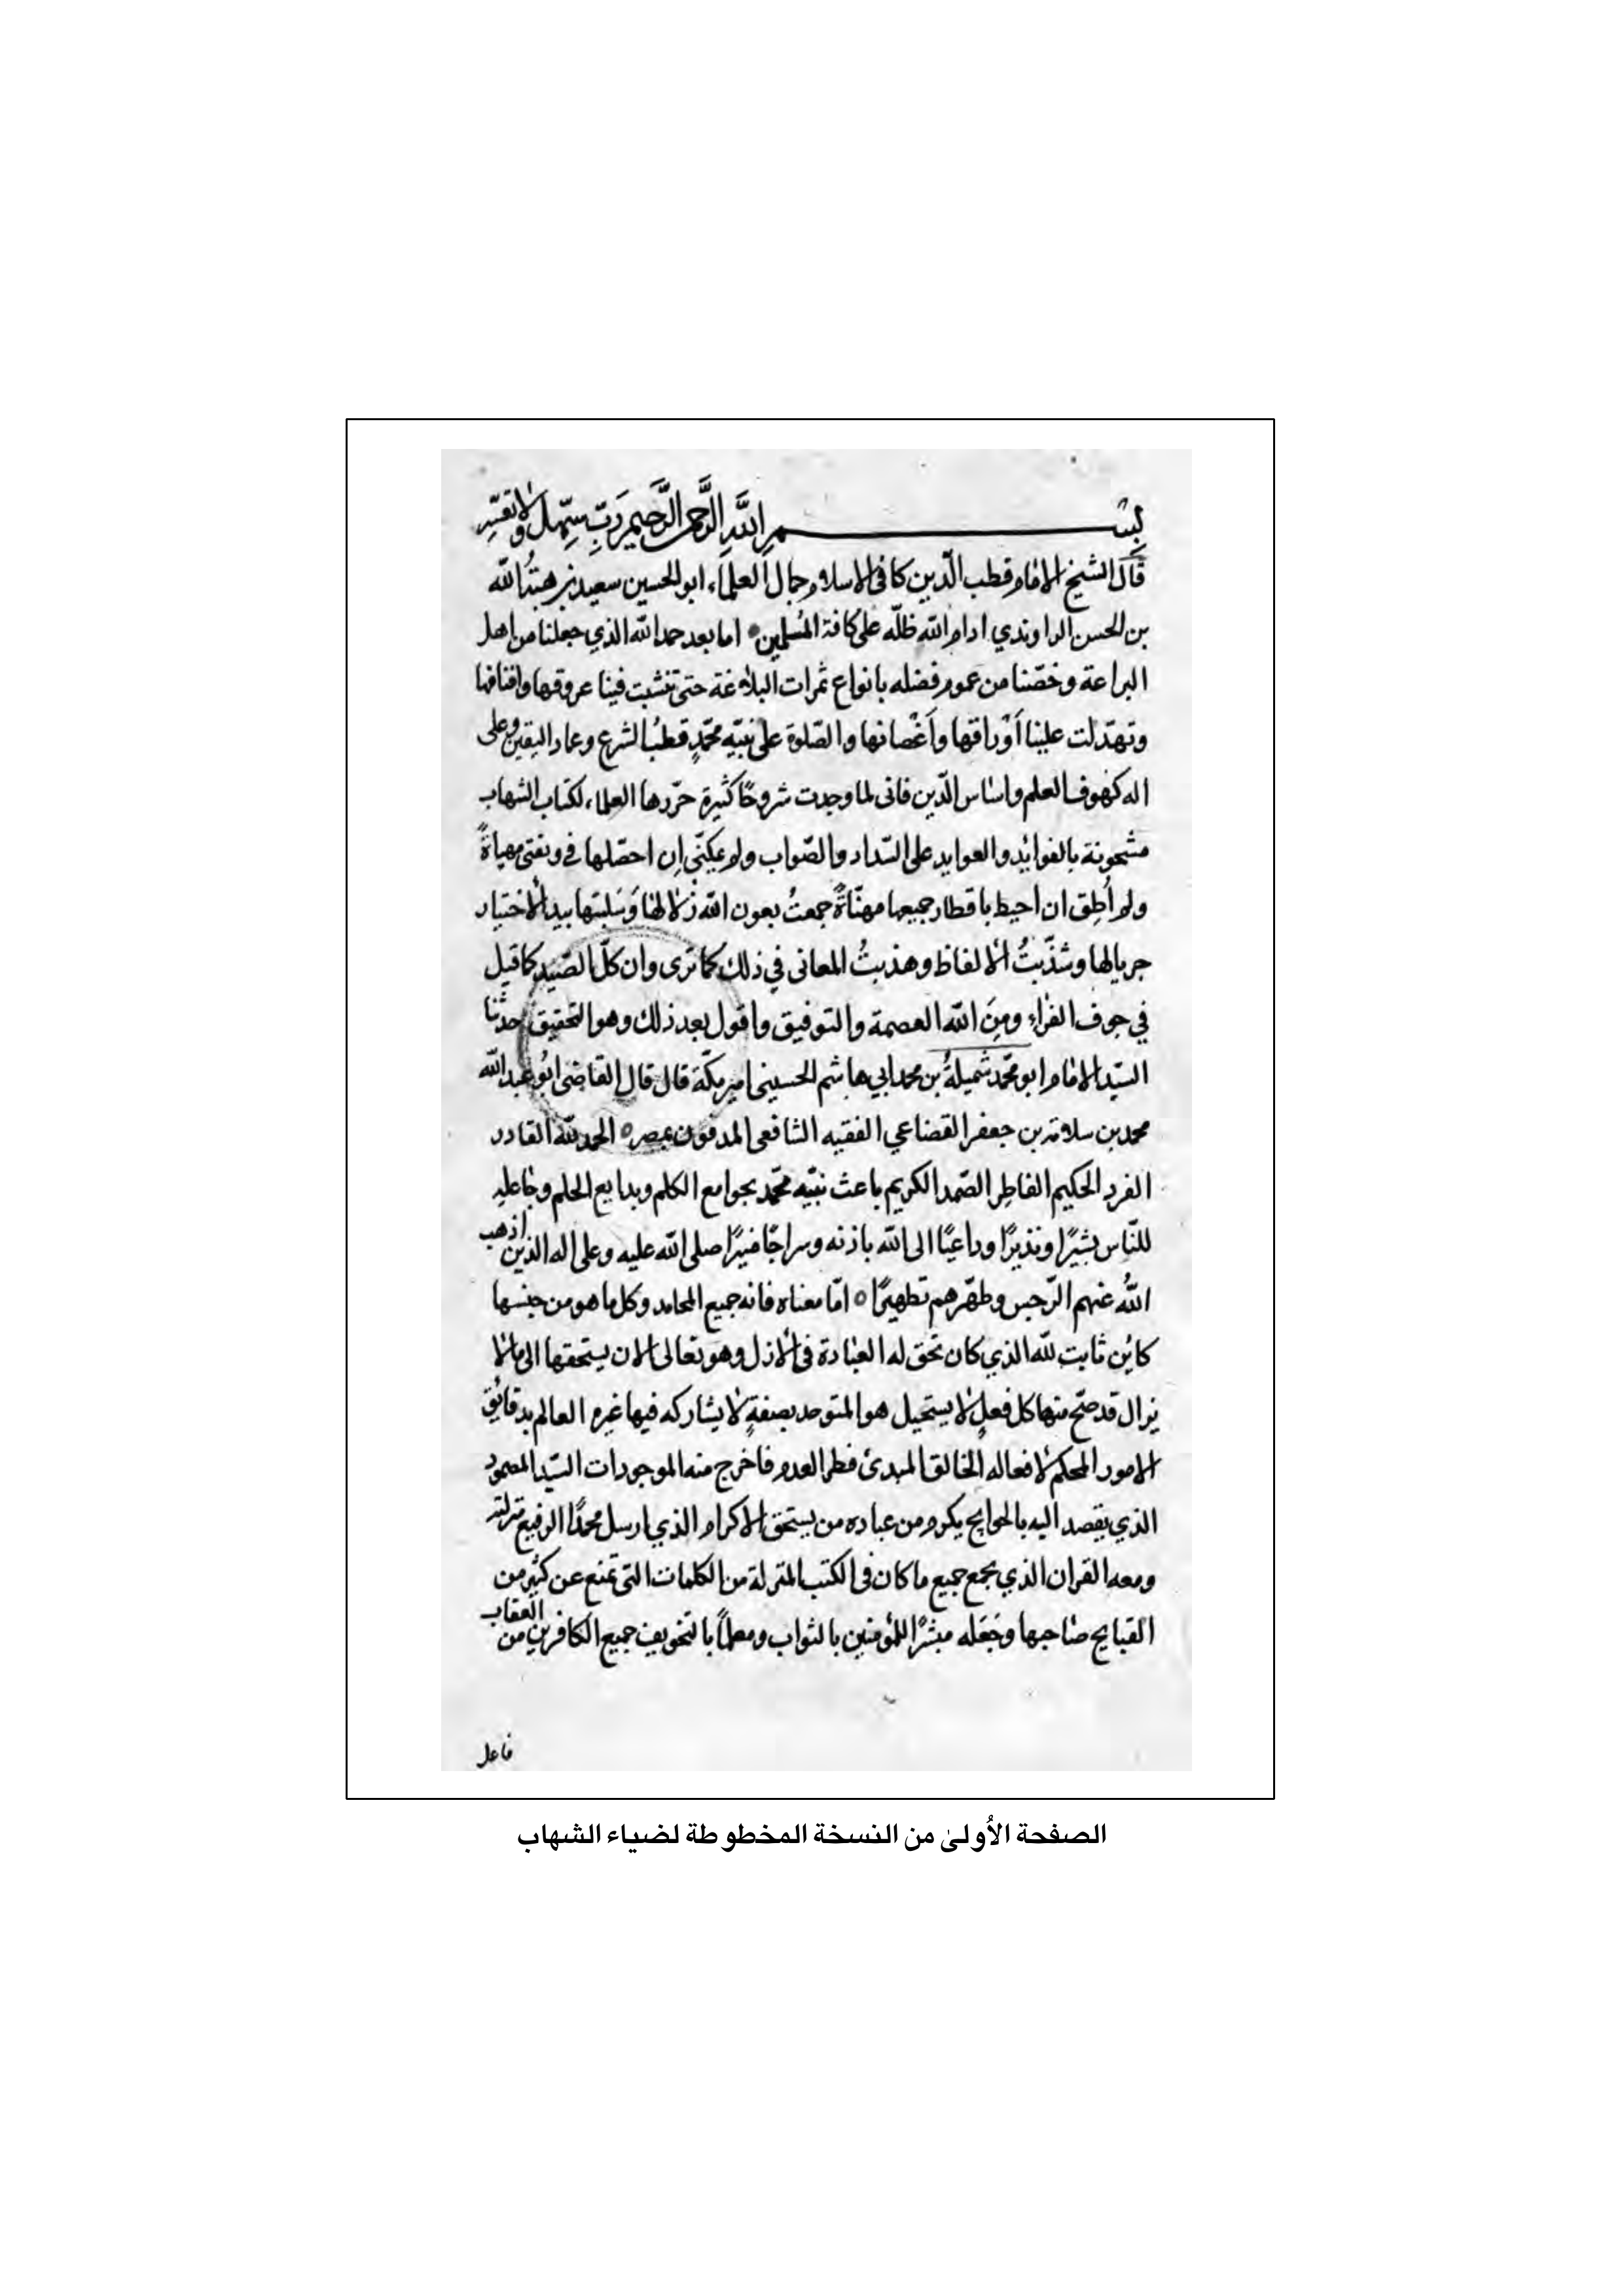 بسم الله الرحمن الرحيم رَبِّ سهّل ولا تعسّر
قال الشيخ الامام قطب الدّين كافى الاسلام جمال العلماء ابو الحسين سعيد بن هبة الله
بن الحسن الراوندي ادام الله ظلّه على كافة المُسلمين اما بعد حمد الله الذي جعلنا من اهل
البراعة وخصّنا من عموم فضله بانواع ثمرات البلاغة حتى تنشبت فينا عروقها وافنانها
وتهدّلت علينا أوْراقها وأَغْصانها والصّلوة على نبيّه محمّدٍ قطب الشرع وعماد اليقين وعلى
اله كهوف العلم واساس الدّين فانى لما وجدت شروحًا كثيرة حرّرها العلماء لكتاب الشهاب
مشحونة بالفوايد والعوايد على السّداد والصّواب ولم يمكنّى ان احصّلها فى وقتى مهياةً
ولم أُطِق ان احيط باقطار جميعها مهنّاةً جمعتُ بعون الله زلالها وَسَلبتها بيد الاختيار
جريالها وشذّبتُ الالفاظ وهذبتُ المعانى في ذلك كما ترى وان كلّ الصّيد كما قيل
في جوف الفراء ومِنَ الله العصمة والتوفيق واقول بعد ذلك وهو التحقيق حدثنا
السيّد الامام ابو محمّد شُميلةُ بن محمد ابي هاشم الحسينى امير مكّة قال قال القاضى ابُو عبد الله
محمد بن سلامة بن جعفر القضاعي الفقيه الشافعى المدفون بمصر الحمد لله القادر
الفرد الحكيم الفاطر الصّمد الكريم باعث نبيّه محمّد بجوامع الكلم وبدايع الحلم وجاعله
للنّاس بشيرًا ونذيرًا وداعيًا الى الله باذنه وسراجًا منيرًا صلى الله عليه وعلى اله الذين اذهب
اللهُ عنهم الرّجس وطهّرهم تطهيرًا امّا معناه فانه جميع المحامد وكل ما هو من جنسها
كائن ثابت لله الذي كان تحق له العبادة فى الازل وهو تعالى الان يستحقها الى ما لا
يزال قد صحّ منها كل فعلٍ لا يستحيل هو المتوحد بصفةٍ لا يشاركه فيها غيره العالم بدقائق
الامور المحكم لافعاله الخالق المبدئ فطر العدم فاخرج منه الموجودات السيّد المصمود
الذي يقصد اليه بالحوايج يكرم من عباده من يستحق الاكرام الذي ارسل محمدًا الرفيع منزلته
ومعه القران الذي يجمع جميع ما كان فى الكتب المنزلة من الكلمات التى تمنع عن كثير من
القبايح صاحبها وجَعَله مبشرًا للمؤمنين بالثواب ومعلمًا بالتخويف جميع الكافرين من العقاب
فاعل
الصفحة الأُولىٰ من النسخة المخطوطة لضياء الشهاب